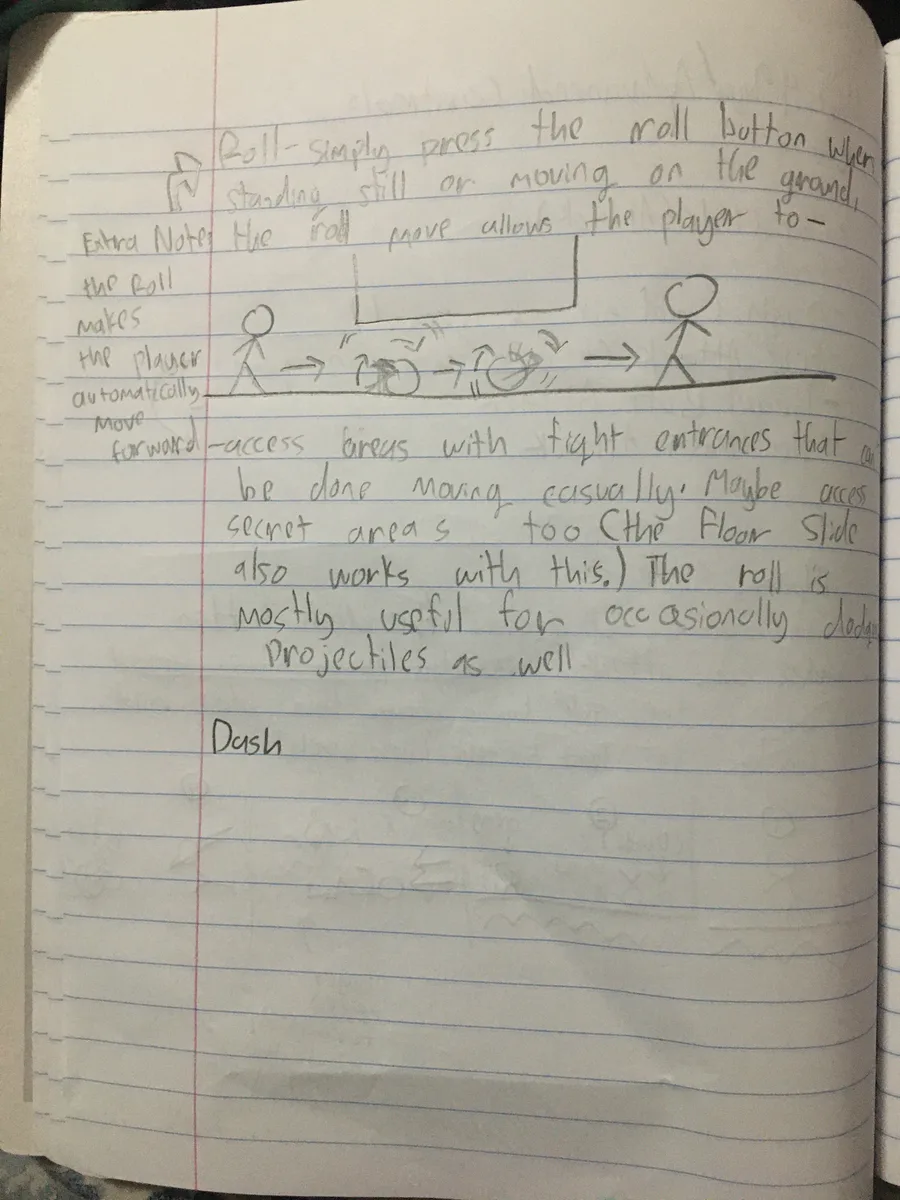 Roll- simply press the roll button when
standing still or moving on the ground,
the roll move allows the player to-
Extra Notes
the Roll
makes
the player
automatically
move
forward
-access areas with tight entrances that
be done moving casually. Maybe access
secret areas too (the Floor Slide
also works with this.) The roll is
mostly useful for occasionally
projectiles as well
Dash